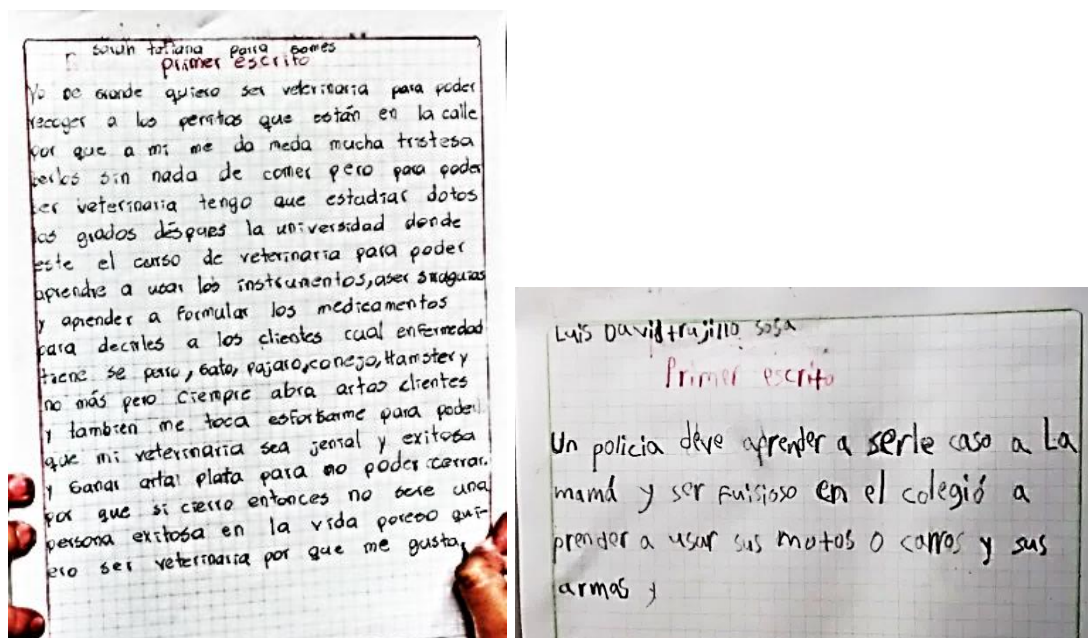 sarah tatiana parra gomes
primer escrito
Yo de grande quiero ser veterinaria para poder
recoger a los perritos que están en la calle
por que a mi me da meda mucha tristesa
berlos sin nada de comer pero para poder
ser veterinaria tengo que estudiar dotos
los grados déspues la universidad donde
este el curso de veterinaria para poder
aprendre a usar los instrumentos, aser
y aprender a formular los medicamentos
para decirles a los clientes cual enfermedad
tiene se perro, gato, pajaro, conejo, Hamster y
no más pero ciempre abra artos clientes
y tambien me toca esforsarme para poder
que mi veterinaria sea jenial y exitosa
y ganar artar plata para no poder cerrar.
por que si cierro entonces no sere una
persona exitosa en la vida poreso qui-
ero ser veterinaria por que me gusta,
Luis David trujillo sosa
Primer escrito
Un policia deve aprender a serle caso a La
mamá y ser Fuisioso en el colegió a
prender a usar sus motos o carros y sus
armas y